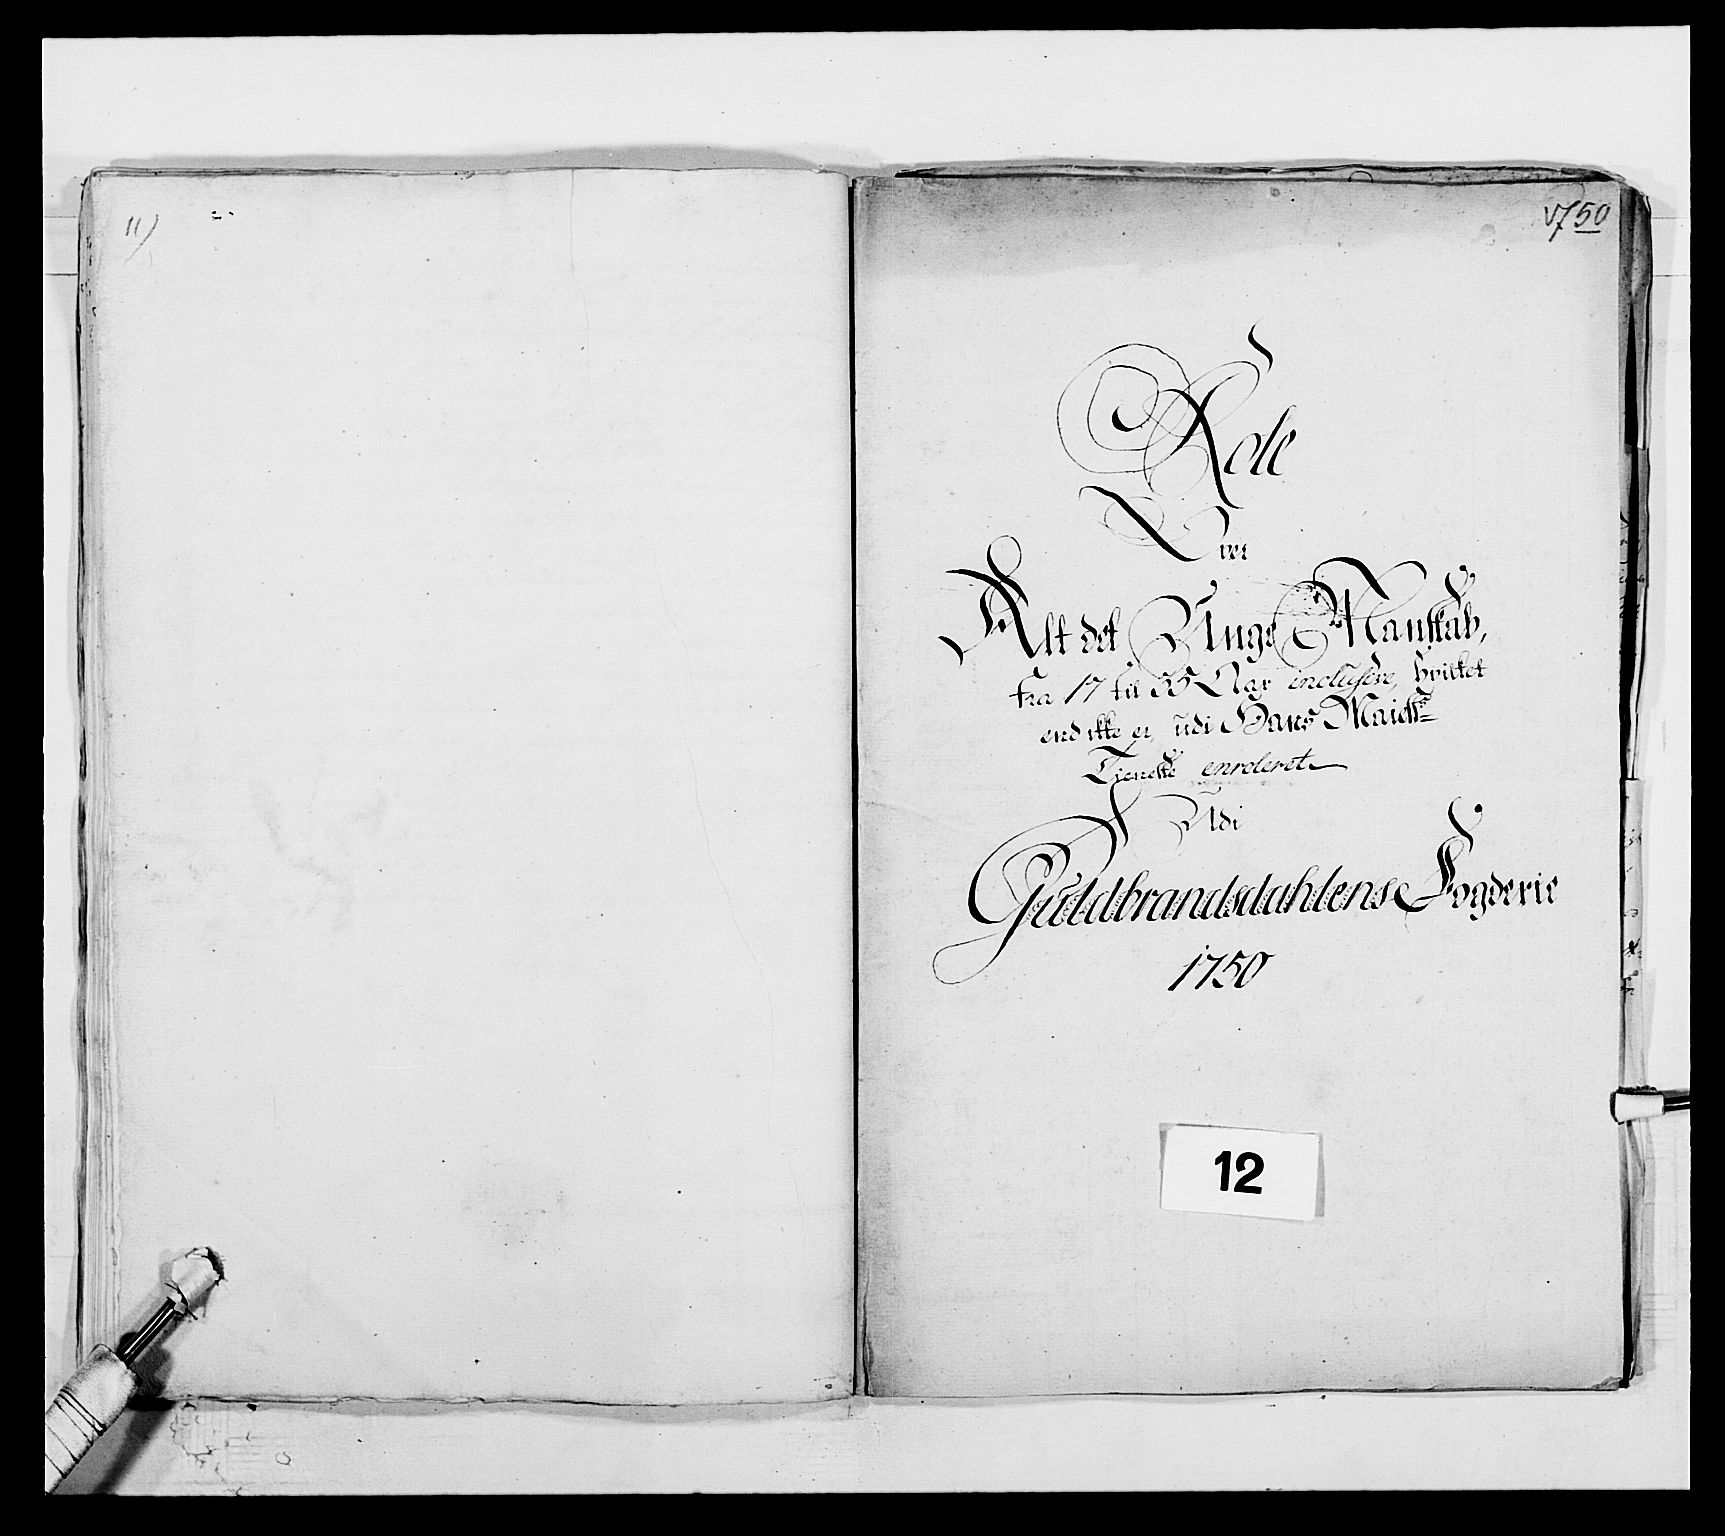 11)
1750
Rolle
Over
Alt det Unge Mandskab,
fra 17 til 35 Aar inclusive, hvilket
end ikke er udi Hans Maiets
Tieneste enroleret
Udi
Guldbrandsdahlens Fogderie
1750
12